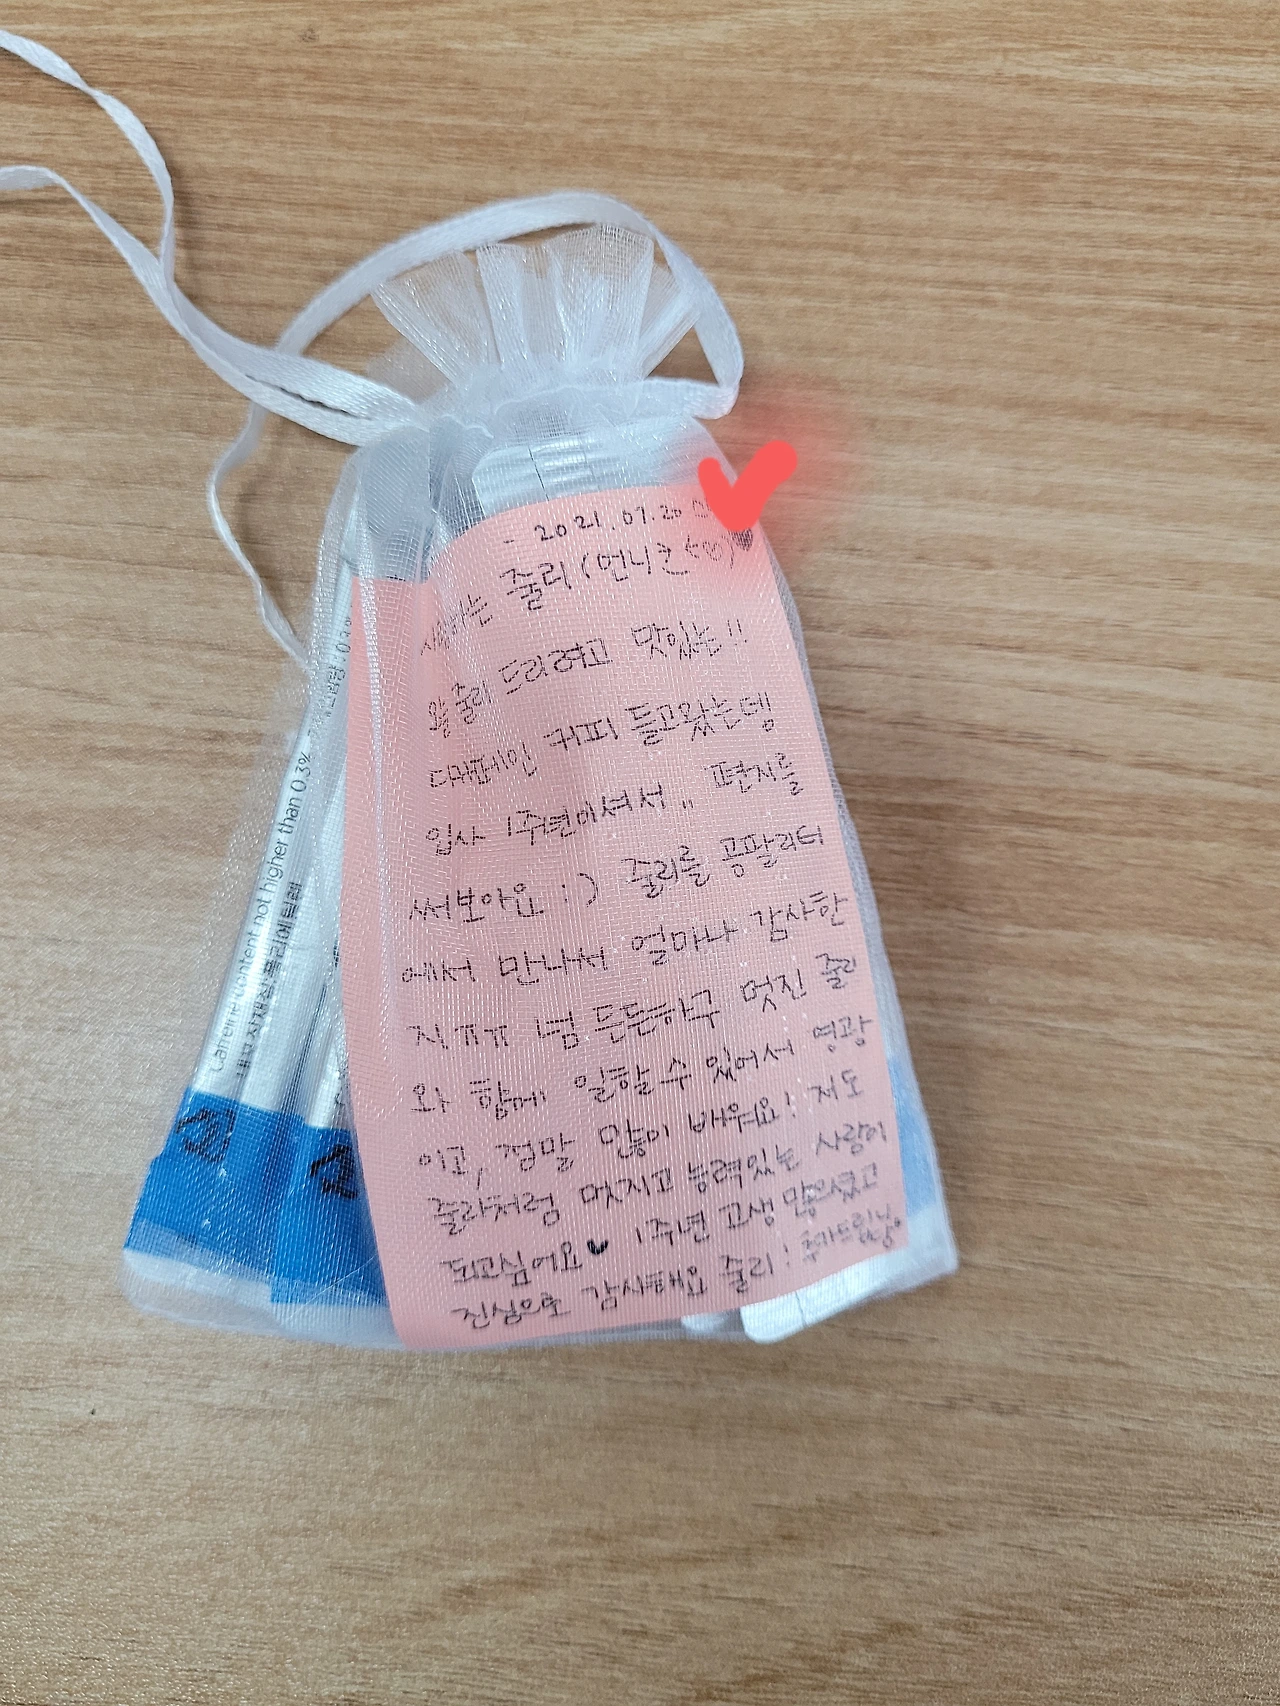 - 2021.07.20
사랑하는 줄리 (언니크
왕줄리 드리려고 맛있는!!
디카페인 커피 들고왔는데
입사 1주년이셔서,, 편지를
써보아요 :) 줄리를 공팔리터
에서 만나서 얼마나 감사한
지 ㅠㅠ 넘 든든하구 멋진 줄리
와 함께 일할 수 있어서 영광
이고, 정말 많이 배워요! 저도
줄리처럼 멋지고 능력있는 사람이
되고싶어요♥ 1주년 고생 많으셨고
진심으로 감사해요 줄리! 드림
Caffeine content not higher than 0.3%
내포장재질:폴리에틸렌